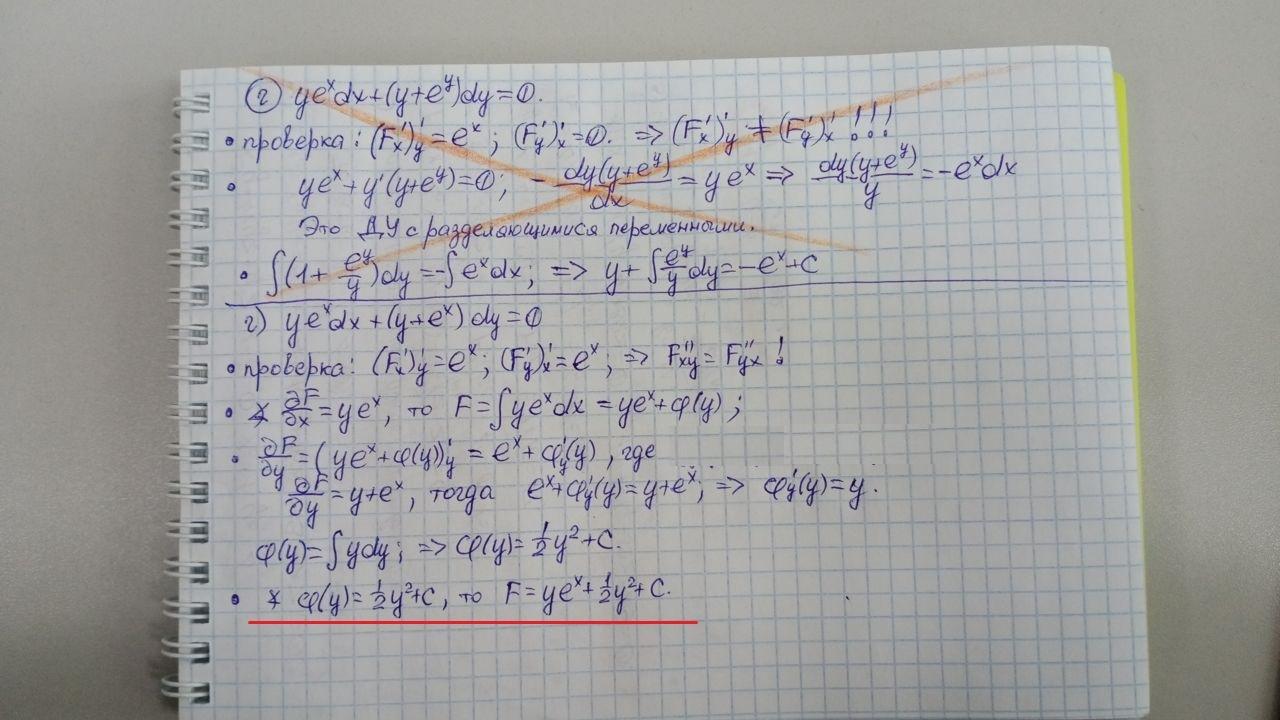 г) yeˣdx+(y+eʸ)dy=0.
• проверка: (F'ₓ)'ᵧ=eˣ; (F'ᵧ)'ₓ=0. ⇒ (F'ₓ)'ᵧ ≠ (F'ᵧ)'ₓ !!!
• yeˣ+y'(y+eʸ)=0; -dy(y+eʸ)/dx = yeˣ ⇒ dy(y+eʸ)/y = -eˣdx
Это ДУ с разделяющимися переменными.
• ∫(1+eʸ/y)dy=-∫eˣdx; ⇒ y+∫eʸ/y dy=-eˣ+C
г) yeˣdx+(y+eˣ)dy=0
• проверка: (F'ₓ)'ᵧ=eˣ; (F'ᵧ)'ₓ=eˣ; ⇒ F''ₓᵧ=F''ᵧₓ !
• ∂F/∂x=yeˣ, то F=∫yeˣdx=yeˣ+φ(y);
• ∂F/∂y=(yeˣ+φ(y))'ᵧ=eˣ+φ'ᵧ(y), где
∂F/∂y=y+eˣ, тогда eˣ+φ'ᵧ(y)=y+eˣ; ⇒ φ'ᵧ(y)=y.
φ(y)=∫ydy; ⇒ φ(y)=½y²+C.
• φ(y)=½y²+C, то F=yeˣ+½y²+C.